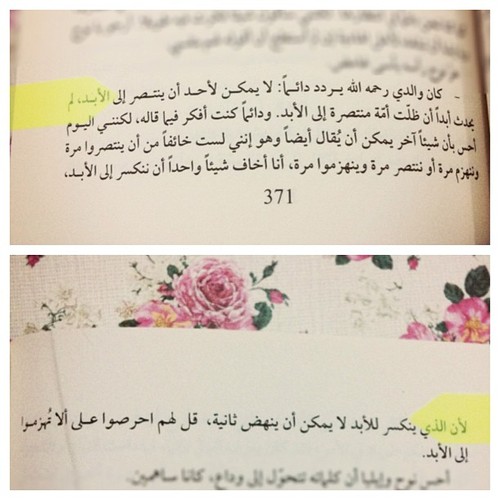 - كان والدي رحمه الله يـردد دائـماً: لا يمكـن لأحـد أن ينتـصر إلى الأبـد، لم
يحدث أبداً أن ظلّت أمّة منتصرة إلى الأبد. ودائماً كنت أفكر فيما قاله، لكننـي اليـوم
أحس بأن شيئاً آخر يمكن أن يُقال أيضاً وهو إنني لست خائفاً من أن ينتصروا مرة
وننهزم مرة أو ننتصر مرة وينهزموا مرة، أنا أخاف شيئاً واحداً أن ننكسر إلى الأبـد،
371
لأن الذي ينكسر للأبد لا يمكن أن ينهض ثانية، قل لهم احرصوا عـلى ألا تُهزمـوا
إلى الأبد.
أحس نوح وإيليا أن كلماته تتحوّل إلى وداع، كانا ساهمين.